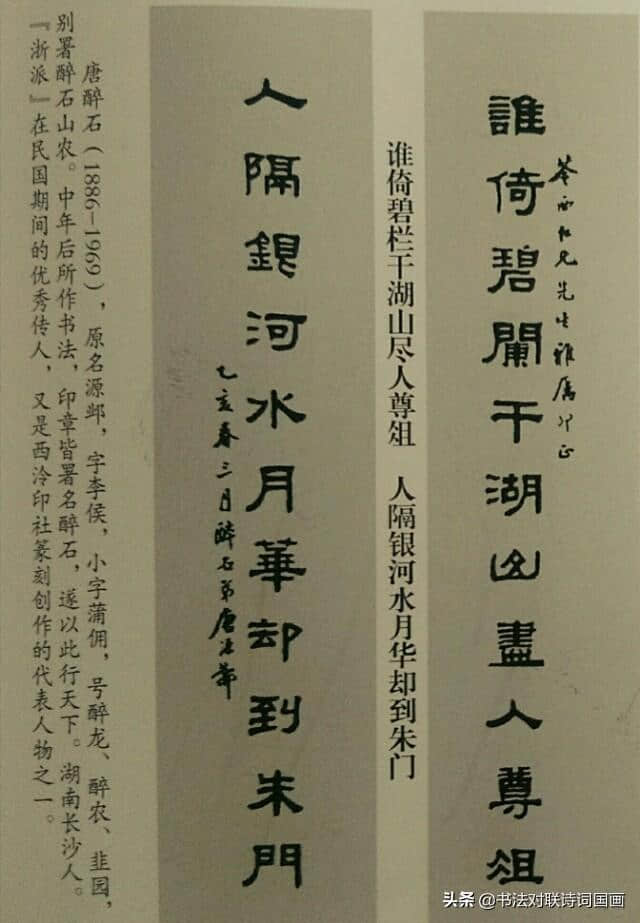 苓西仁兄先生雅属正
誰倚碧闌干湖山盡人尊俎
谁倚碧栏干湖山尽人尊俎 人隔银河水月华却到朱门
人隔銀河水月華却到朱門
乙亥春三月醉石弟唐源鄴
唐醉石（1886-1969），原名源邺，字李侯，小字蒲佣，号醉龙、醉农、韭园，
别署醉石山农。中年后所作书法，印章皆署名醉石，遂以此行天下。湖南长沙人。
『浙派』在民国期间的优秀传人，又是西泠印社篆刻创作的代表人物之一。
头条 @书法对联诗词国画